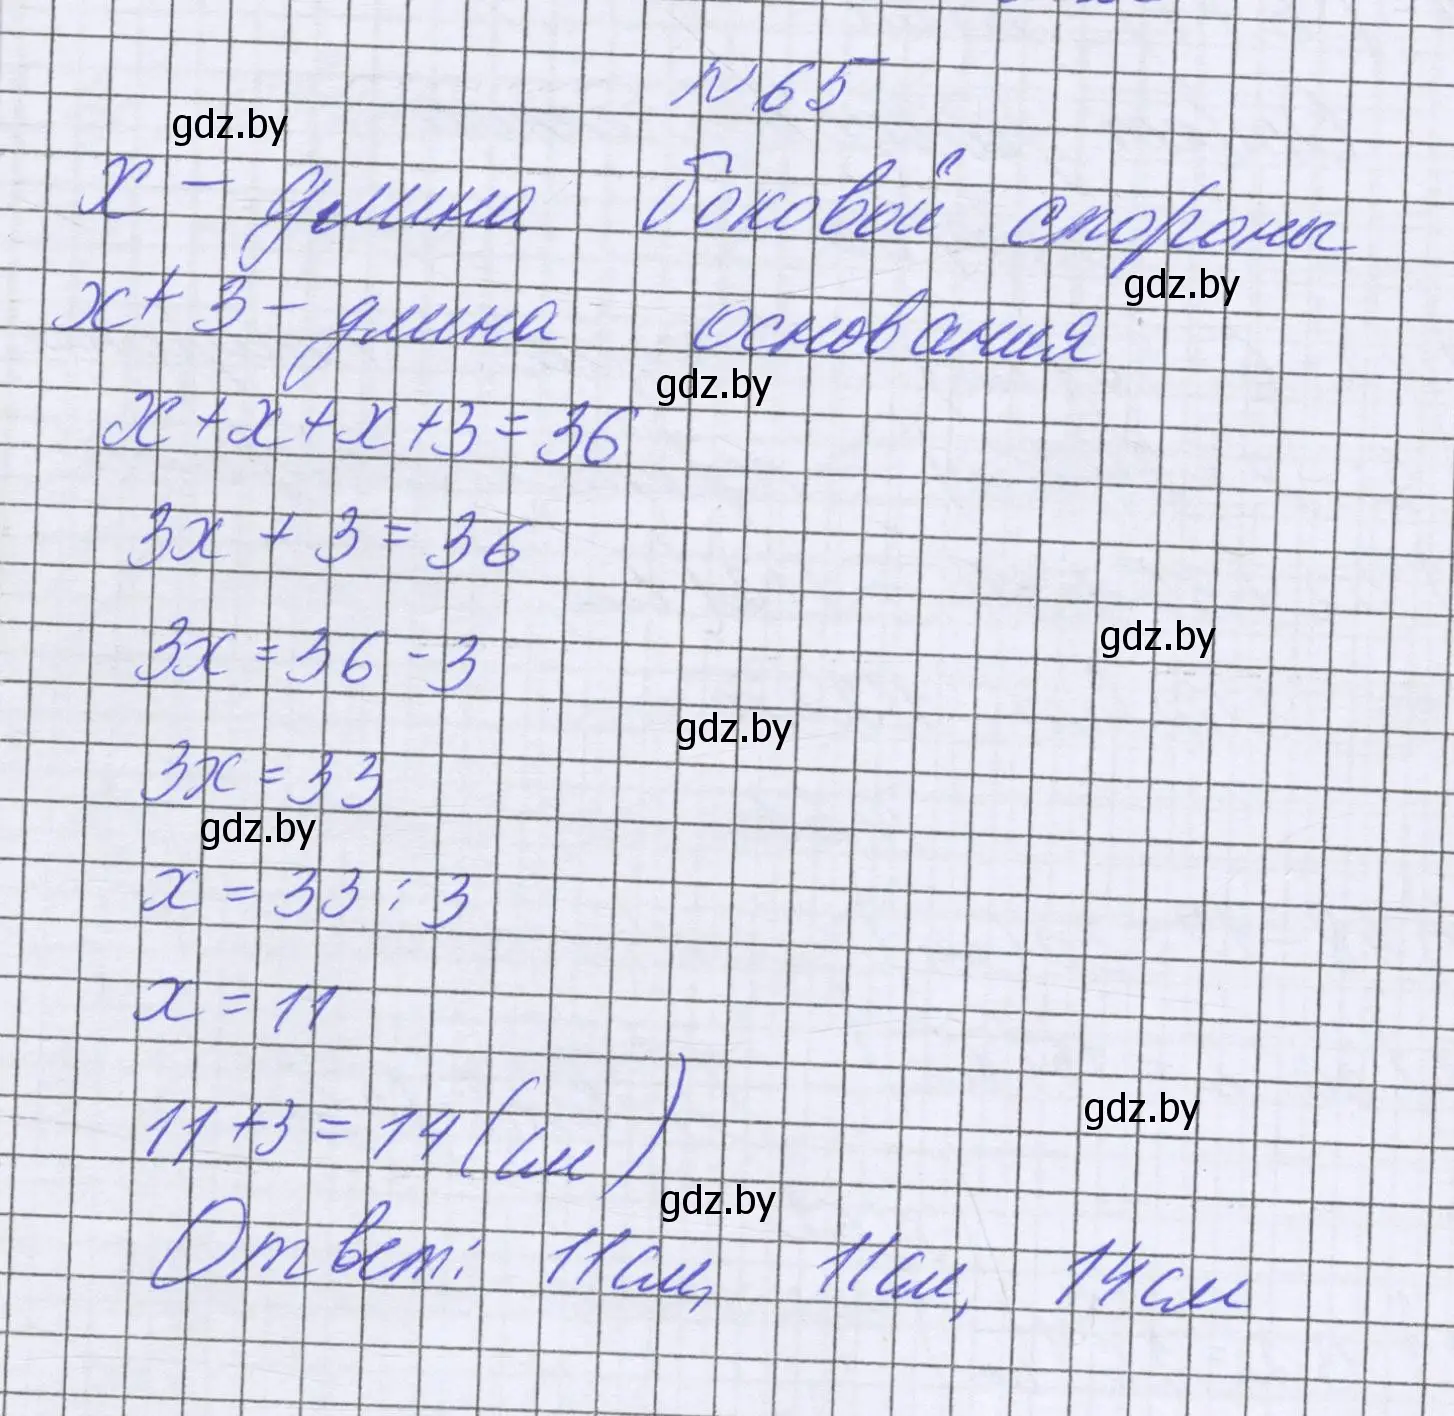 №65
gdz.by
x – длина боковой стороны
gdz.by
x + 3 – длина основания
gdz.by
x + x + x + 3 = 36
3x + 3 = 36
gdz.by
3x = 36 - 3
gdz.by
3x = 33
gdz.by
x = 33 : 3
x = 11
gdz.by
11 + 3 = 14 (см)
gdz.by
Ответ: 11 см, 11 см, 14 см